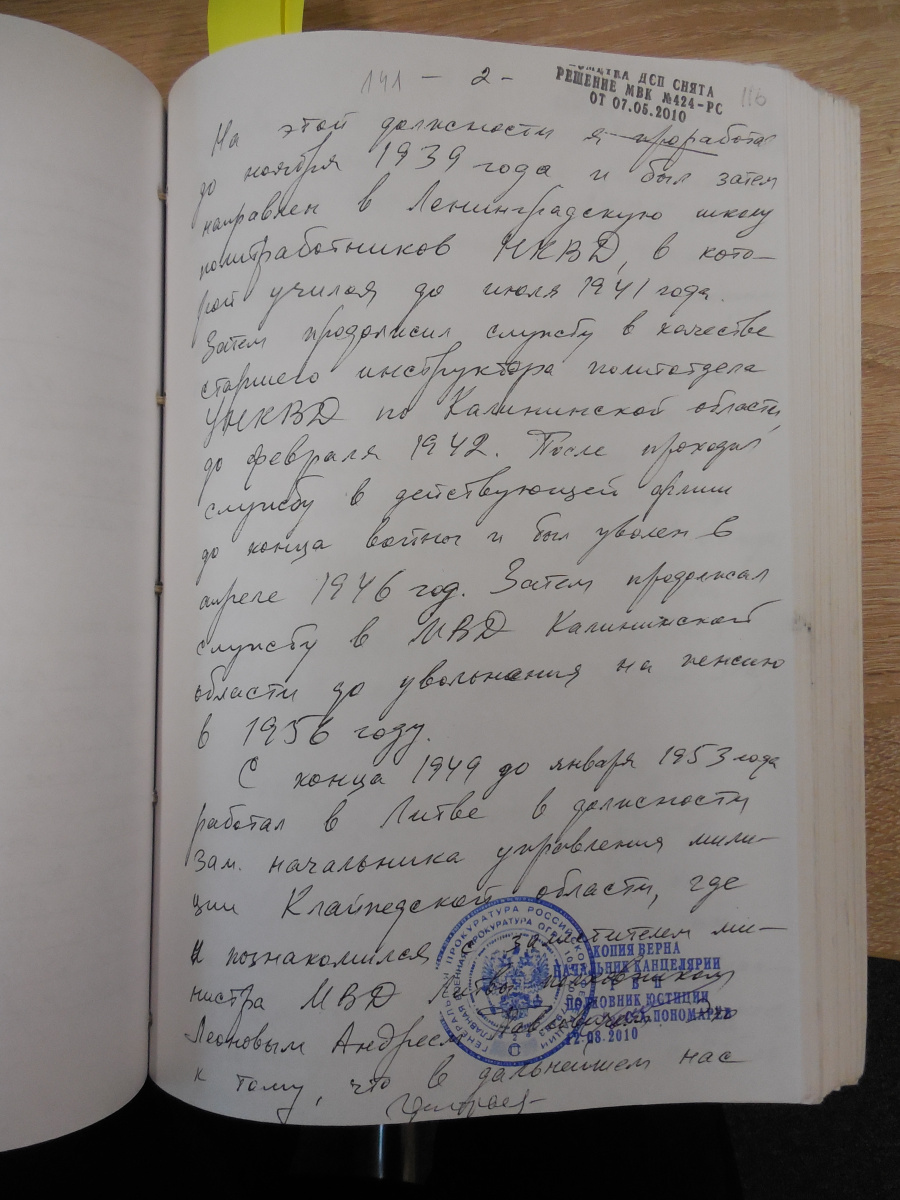 141 - 2 - 116
ПОМЕТКА ДСП СНЯТА
РЕШЕНИЕ МВК №424-РС
ОТ 07.05.2010
На этой должности я проработал
до ноября 1939 года и был затем
направлен в Ленинградскую школу
политработников НКВД, в кото-
рой учился до июля 1941 года.
Затем продолжил службу в качестве
старшего инструктора политотдела
УНКВД по Калининской области,
до февраля 1942. После проходил
службу в действующей армии
до конца войны и был уволен в
апреле 1946 год. Затем продолжал
службу в МВД Калининской
области до увольнения на пенсию
в 1956 году.
С конца 1949 до января 1953 года
работал в Литве в должности
зам. начальника управления мили-
ции Клайпедской области, где
и познакомился с заместителем ми-
нистра МВД Литвы полковником
Леоновым Андреем
к тому, что в дальнейшем нас
КОПИЯ ВЕРНА
НАЧАЛЬНИК КАНЦЕЛЯРИИ
ПОЛКОВНИК ЮСТИЦИИ
ПОНОМАРЕВ
12.08.2010